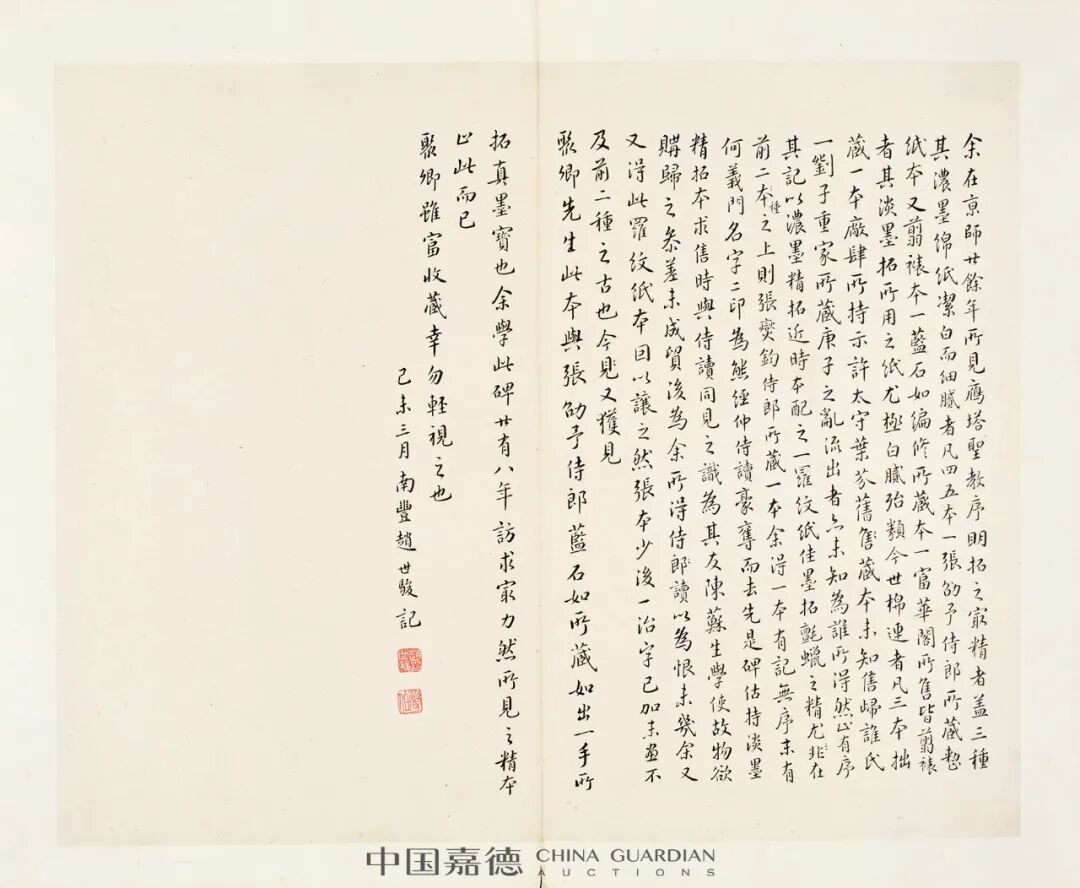 余在京師廿餘年所見鴈塔聖教序明拓之㝡精者蓋三種
其濃墨綿紙潔白而細膩者凡四五本一張劭予侍郎所藏整
紙本又翦裱本一藍石如編修所藏本一富華閣所售皆翦裱
者其淡墨拓所用之紙尤極白膩殆類今世棉連者凡三本拙
藏一本廠肆所持示許太守葉芬舊藏本未知售歸誰氏
一劉子重家所藏庚子之亂流出者亦未知為誰所得然止有序
其記以濃墨精拓近時本配之一羅紋紙佳墨拓氈蠟之精尤非在
前二本種之上則張燮鈞侍郎所藏一本余得一本有記無序末有
何義門名字二印為熊經仲侍讀豪奪而去先是碑估持淡墨
精拓本求售時與侍讀同見之識為其友陳蘇生學使故物欲
購歸之叅差未成貿後為余所得侍郎讀以為恨未幾余又
又得此羅紋紙本回以讓之然張本少後一治字已加末畫不
及前二種之古也今見又獲見
聚卿先生此本與張劭予侍郎藍石如所藏如出一手所
拓真墨寶也余學此碑廿有八年訪求㝡力然所見之精本
止此而已
聚卿雖富收藏幸勿輕視之也
己未三月南豐趙世駿記
中国嘉德 CHINA GUARDIAN
AUCTIONS